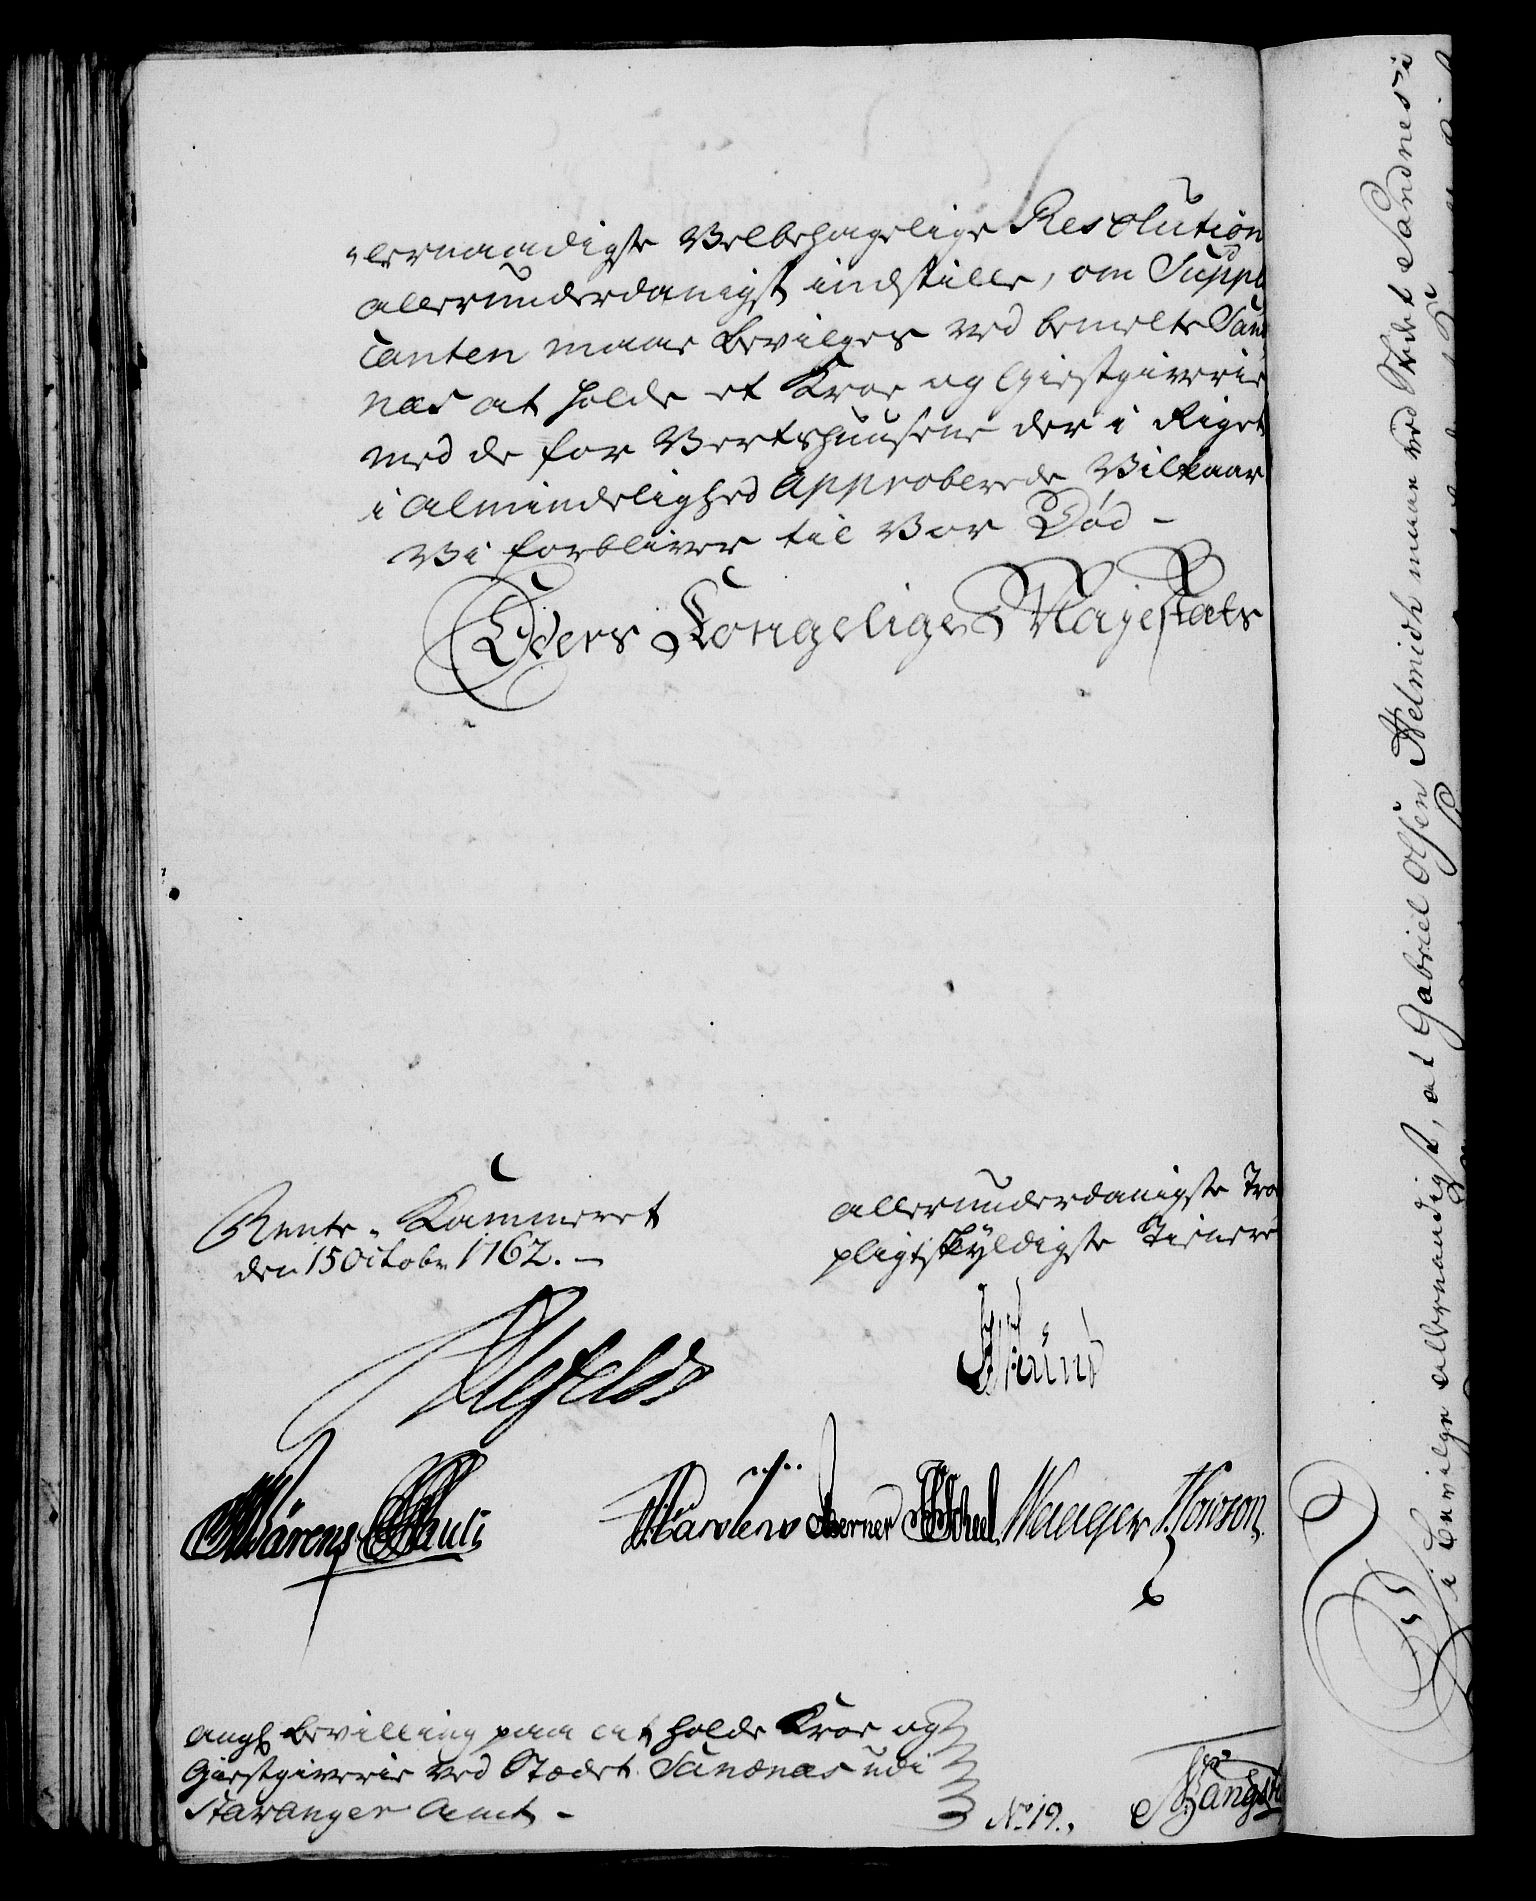 lernaadigste Velbehagelige Resolution
allerunderdanigst indstille, om Suppli
canten maae bevilges ved bemelte San
næs at holde et Kroe og Giestgiverie
med de for Vertshuusene der i Riget
i Almindelighed approberede Vilkaar
Vi forbliver til Vor Død -
Eders Kongelige Majestæts
Rente-Kammeret
den 15 Octobr 1762. -
allerunderdanigste Troe
pligtskyldigste Tienere
Ahlefeldt
Bärens Pauli
Berner Scheel
ang: Bevilling paa at holde Kroe og
Giestgiverie ved Stædet Sandnæs udi
Stavanger Amt -
No 19.
Vi bevilge allernaadigst, at Gabriel Olsen Helmich maae ved Stædet Sandnes i